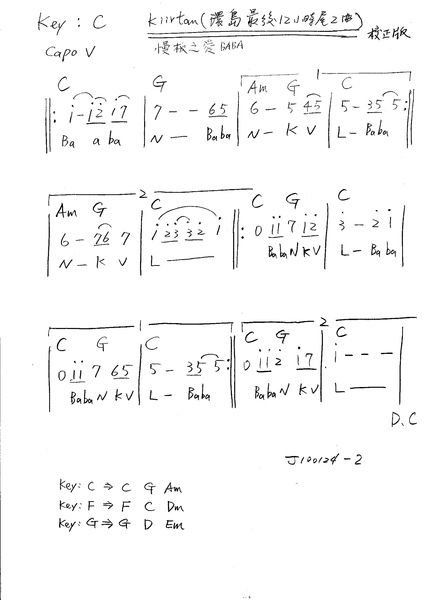 Key : C   Kiirtan (環島最後12小時尾2曲)   校正版
Capo V   慢板之愛 BABA
C   G   Am   G   1   C
||: i - i2 i7 | 7 - - 65 | 6 - 5 45 | 5 - 35 5 :||
Ba a ba   N — Baba   N - K V   L - Baba
Am   G   2   C   C   G   C
6 - 76 7 | i 23 32 i ||: 0 ii 7 i2 | 3 - 2 i |
N - K V   L ——   Baba N KV   L - Baba
C   G   1   C   C   G   2   C
0 ii 7 65 | 5 - 35 5 :|| 0 ii 2 i7 | i - - -
Baba N KV   L - Baba   Baba N KV   L ——
D.C
J100124-2
Key: C ⇒ C G Am
Key: F ⇒ F C Dm
Key: G ⇒ G D Em